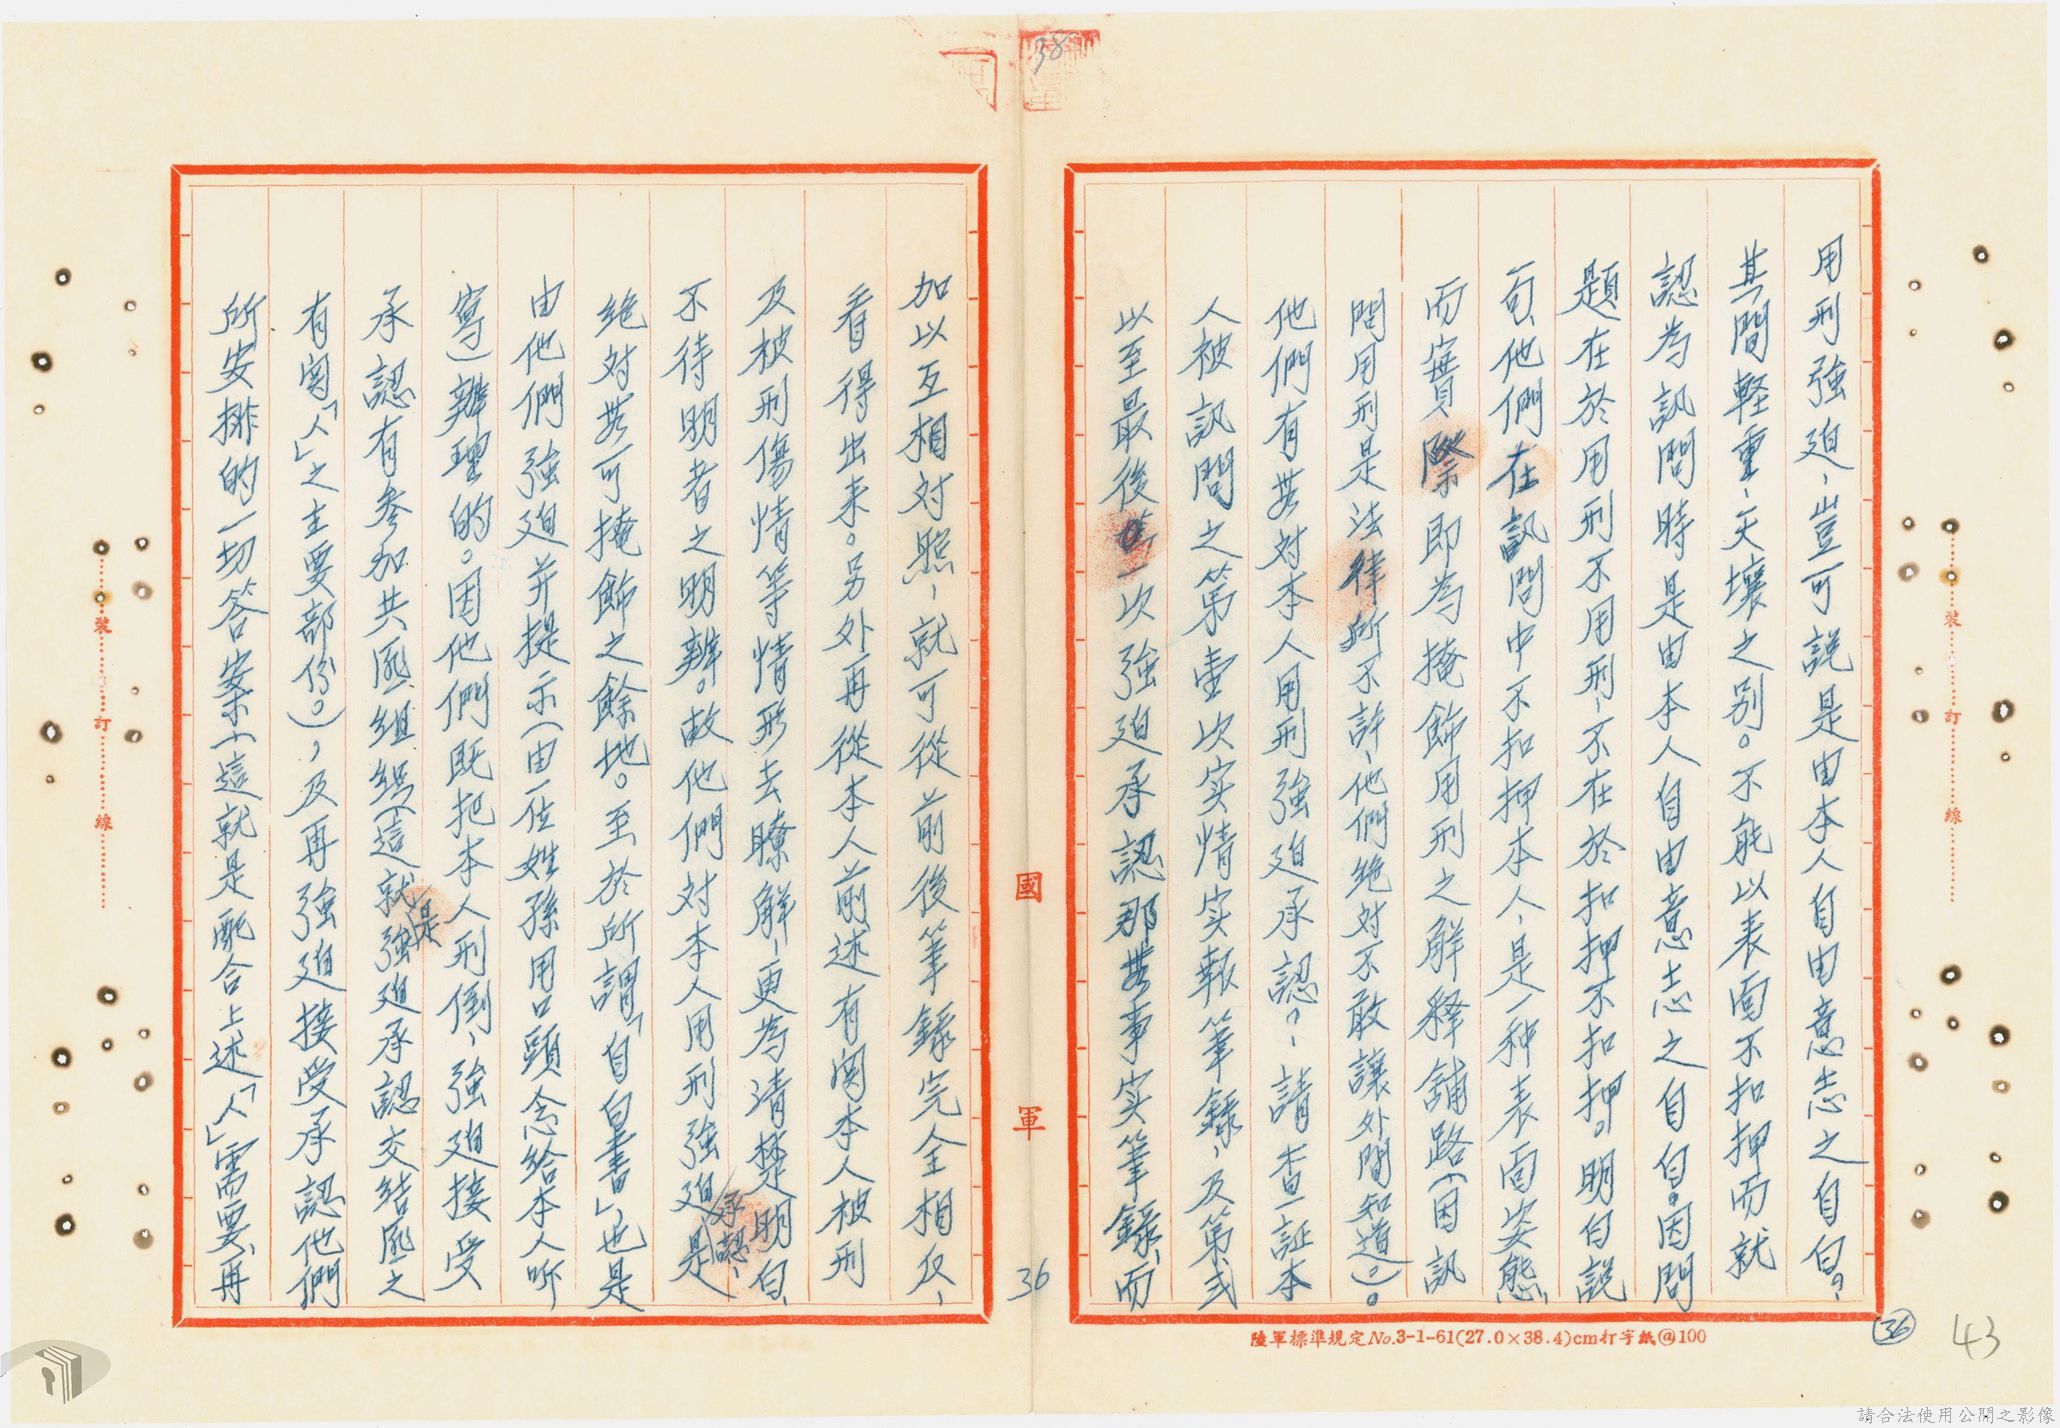 用刑強迫、豈可說是由本人自由意志之自白。
其間輕重、天壤之别。不能以表面不扣押而就
認為訊問時是由本人自由意志之自白。因問
題在於用刑不用刑、不在於扣押不扣押。明白說
一句、他們在訊問中不扣押本人、是一种表面姿態、
而實際即為掩飾用刑之解釋舖路(因訊
問用刑是法律所不許、他們绝对不敢讓外間知道。)。
他們有無对本人用刑強迫承認。、請查証本
人被訊問之第壹次实情实報筆錄、及第弍
以至最後一次強迫承認那無事实筆錄、而
加以互相对照、就可從前後筆錄完全相反、
看得出来。另外再從本人前述有関本人被刑
及被刑傷情等情形去瞭解、更為清楚明白、
不待明者之明辨。故他們对本人用刑強迫承認、是
绝对無可掩飾之餘地。至於所謂「自白書」、也是
由他們強迫并提示(由一位姓孫用口頭念給本人听
寫)辦理的。因他們既把本人刑倒、強迫接受
承認有參加共匪組織(這就是強迫承認交結匪之
有関「人」之主要部份。)，及再強迫接受承認他們
所安排的一切答案(這就是配合上述「人」需要、再
國軍
36
38
裝 訂 線
裝 訂 線
陸軍標準規定No.3-1-61(27.0×38.4)cm打字紙@100
36
43
請合法使用公開之影像